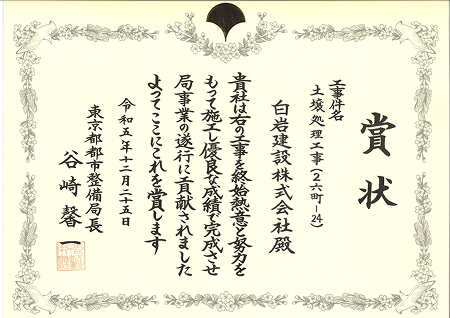 賞状
工事件名
土壌処理工事(2六町-24)
白岩建設株式会社殿
貴社は右の工事を終始熱意と努力を
もって施工し優良な成績で完成させ
局事業の遂行に貢献されました
よってここにこれを賞します
令和五年十二月二十五日
東京都都市整備局長
谷崎馨一